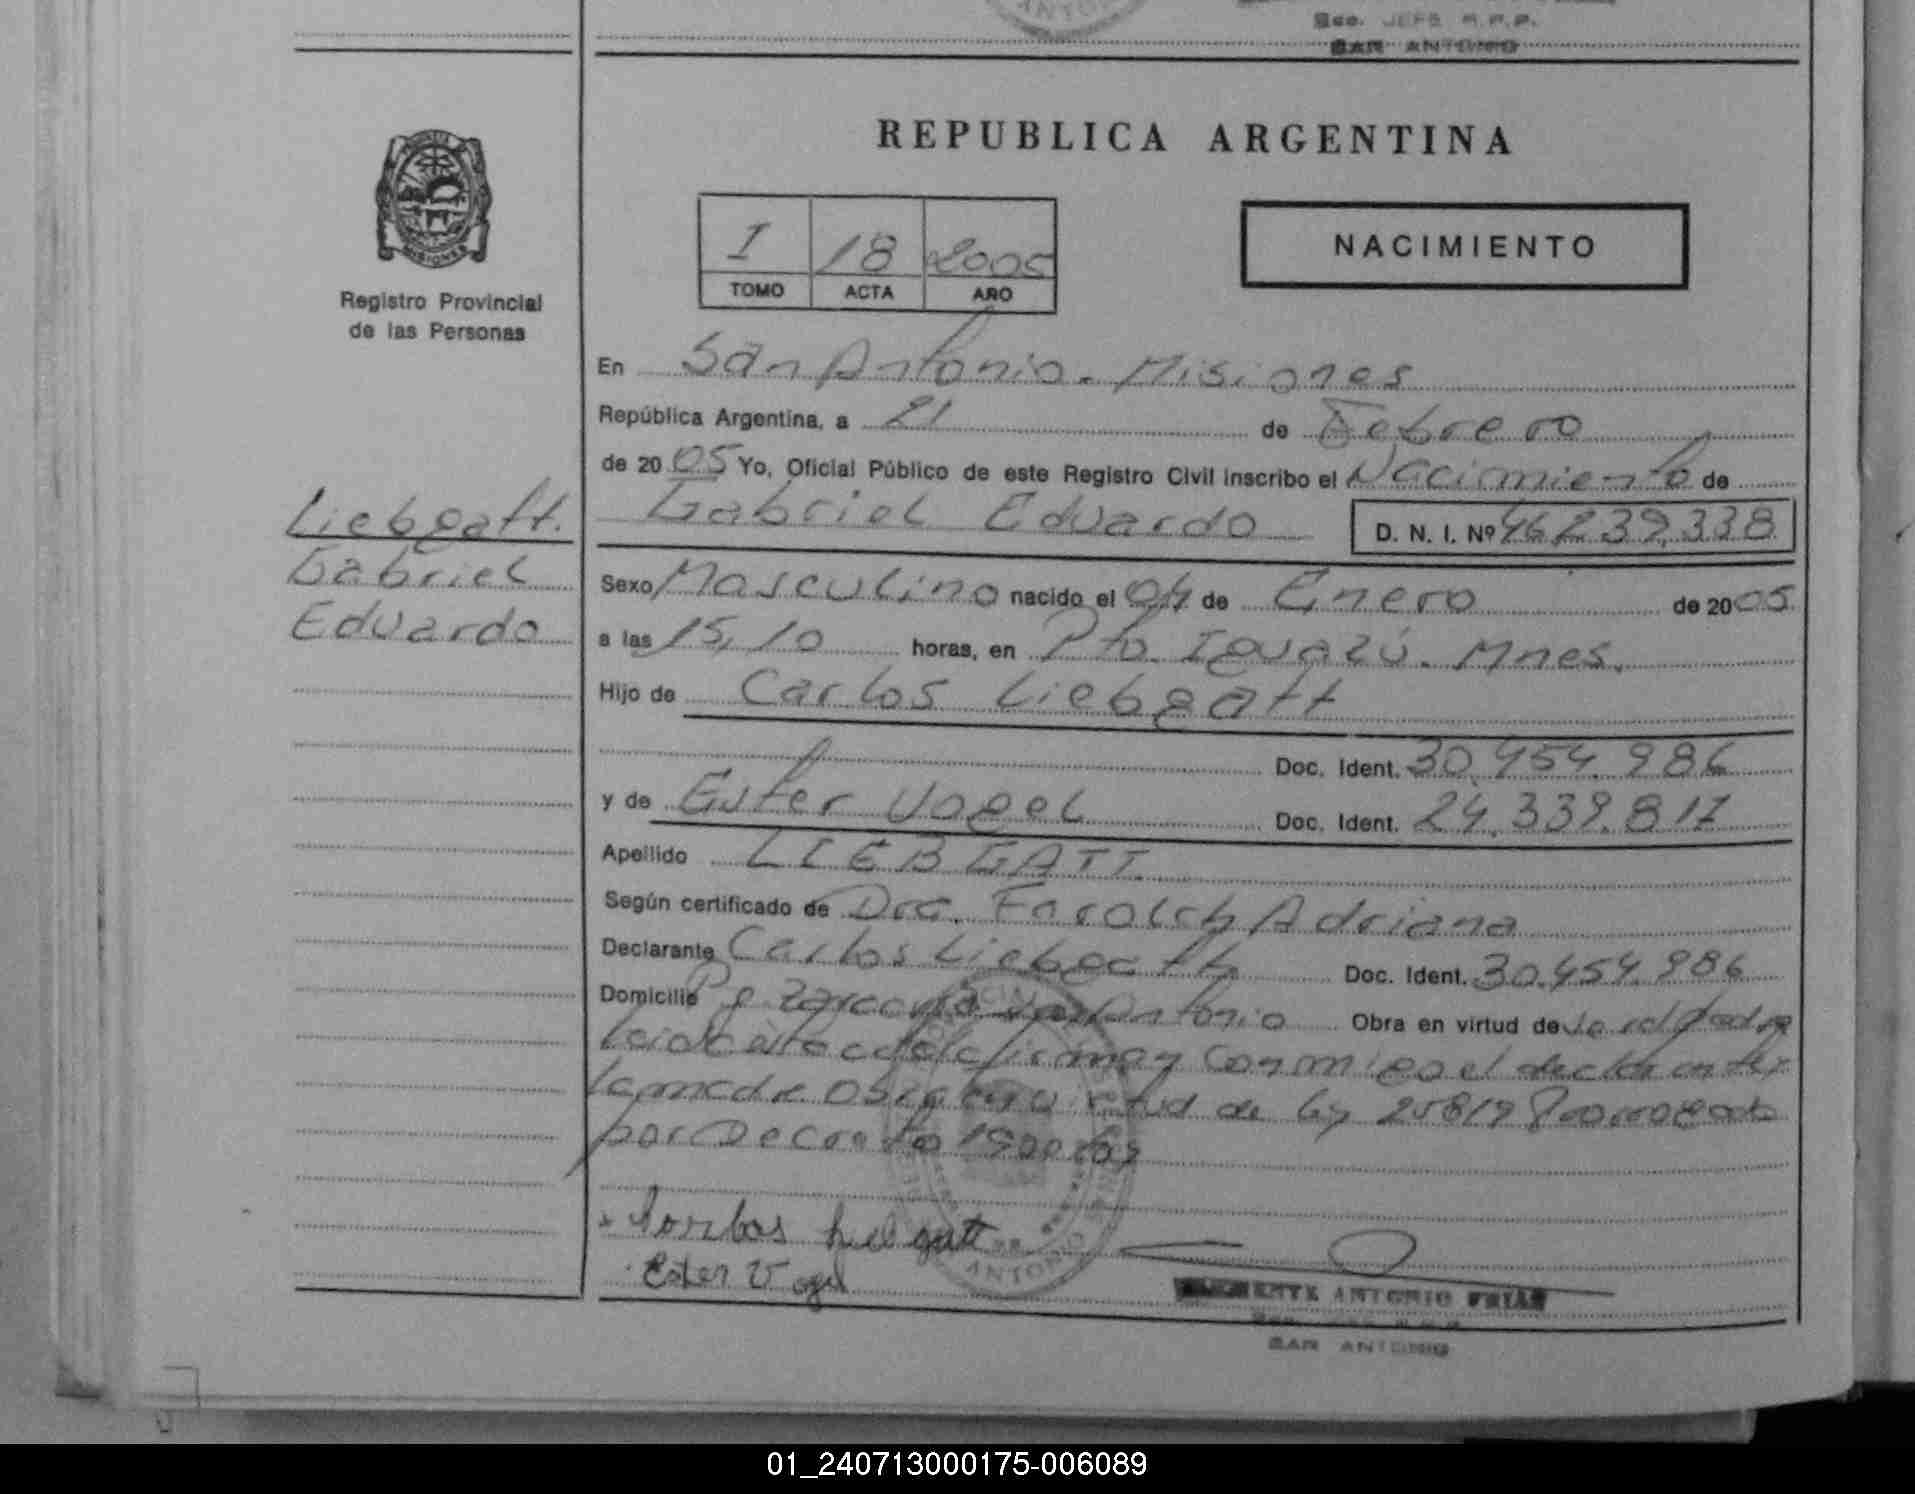 Sec. JEFE R.P.P.
SAN ANTONIO
REPUBLICA ARGENTINA
I 18 2005
TOMO ACTA AÑO
NACIMIENTO
MISIONES
Registro Provincial
de las Personas
En San Antonio. Misiones
República Argentina, a 21 de Febrero
de 2005 Yo, Oficial Público de este Registro Civil inscribo el Nacimiento de
Gabriel Eduardo D. N. I. Nº 46.239.338
Liebgatt.
Gabriel
Eduardo
Sexo Masculino nacido el 04 de Enero de 2005
a las 15,10 horas, en Pto. Iguazú. Mnes.
Hijo de Carlos Liebgatt
Doc. Ident. 30.454.986
y de Ester Vogel Doc. Ident. 24.339.817
Apellido LIEBGATT
Según certificado de Dra. Adriana
Declarante Carlos Liebgatt Doc. Ident. 30.454.986
Domicilio San Antonio Obra en virtud de
conmigo el declarante y
la madre Obra en virtud de Ley 25819
por Decreto
Ester Vogel
ANTONIO
ANTONIO FRIAS
SAN ANTONIO
01_240713000175-006089